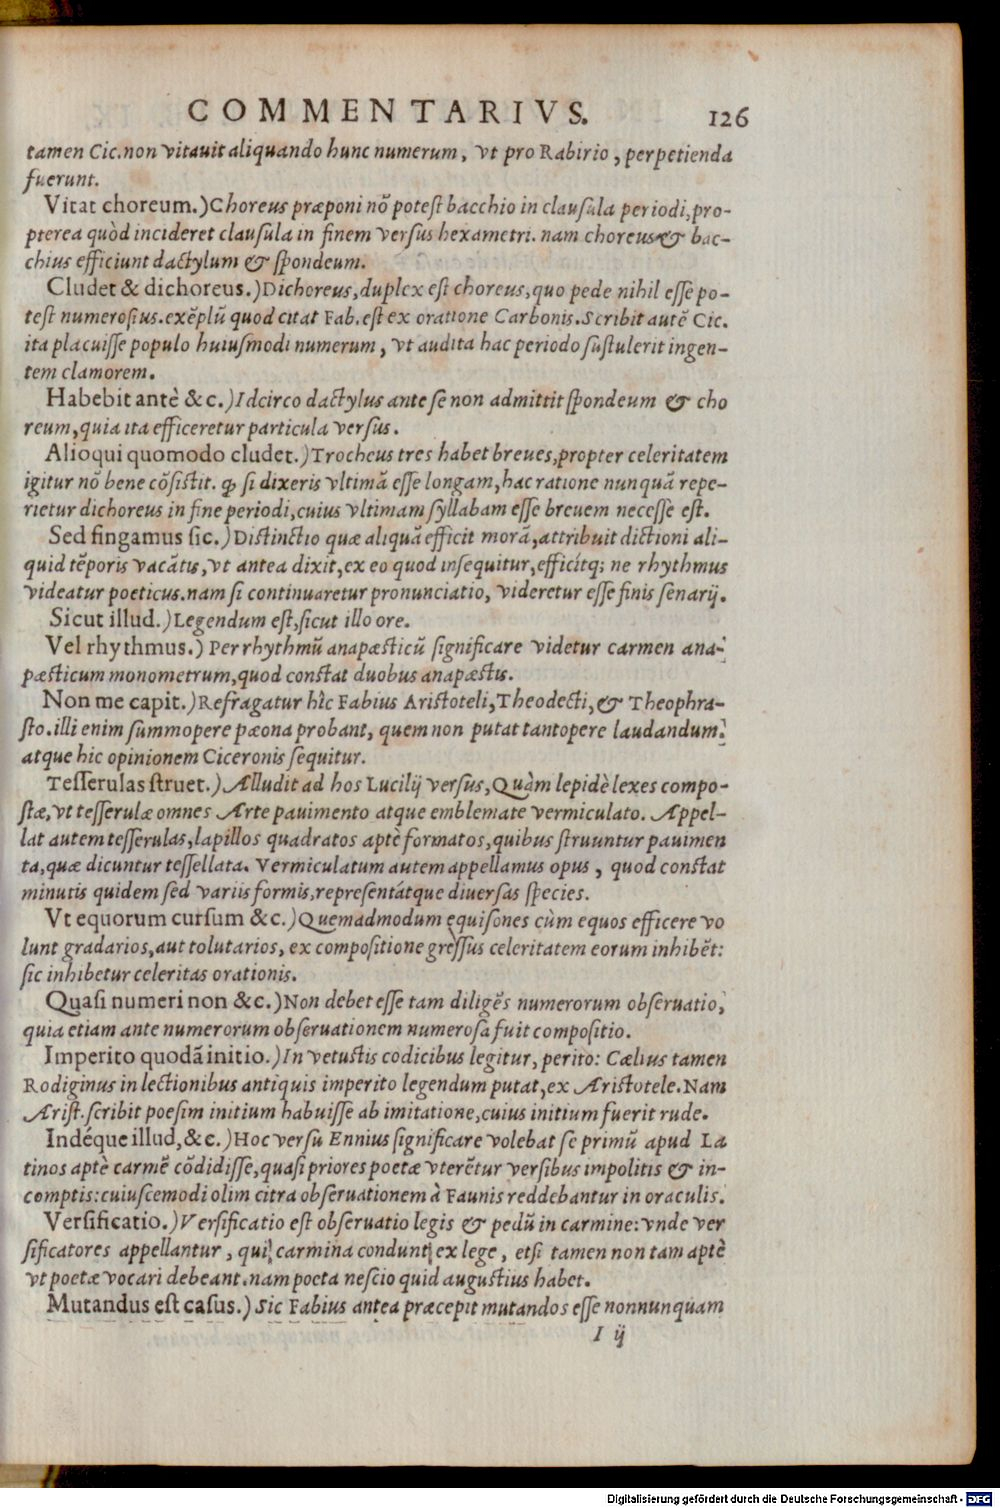 COMMENTARIVS. 126
tamen Cic. non vitauit aliquando hunc numerum, vt pro Rabirio, perpetienda
fuerunt.
Vitat choreum.) Choreus præponi nõ potest bacchio in clausula periodi, pro-
pterea quòd incideret clausula in finem versus hexametri. nam choreus & bac-
chius efficiunt dactylum & spondeum.
Cludet & dichoreus.) Dichoreus, duplex est choreus, quo pede nihil esse po-
test numerosius. exẽplũ quod citat Fab. est ex oratione Carbonis. Scribit autẽ Cic.
ita placuisse populo huiusmodi numerum, vt audita hac periodo sustulerit ingen-
tem clamorem.
Habebit antè &c.) Idcirco dactylus ante se non admittit spondeum & cho
reum, quia ita efficeretur particula versus.
Alioqui quomodo cludet.) Trocheus tres habet breues, propter celeritatem
igitur nõ bene cõsistit. ꝙ si dixeris vltimã esse longam, hac ratione nunquã repe-
rietur dichoreus in fine periodi, cuius vltimam syllabam esse breuem necesse est.
Sed fingamus sic.) Distinctio quæ aliquã efficit morã, attribuit dictioni ali-
quid tẽporis vacãtis, vt antea dixit, ex eo quod insequitur, efficítq; ne rhythmus
videatur poeticus. nam si continuaretur pronunciatio, videretur esse finis senarij.
Sicut illud.) Legendum est, sicut illo ore.
Vel rhythmus.) Per rhythmũ anapæsticũ significare videtur carmen ana-
pæsticum monometrum, quod constat duobus anapæstis.
Non me capit.) Refragatur hîc Fabius Aristoteli, Theodecti, & Theophra-
sto. illi enim summopere pæona probant, quem non putat tantopere laudandum:
atque hic opinionem Ciceronis sequitur.
Tesserulas struet.) Alludit ad hos Lucilij versus, Quàm lepidè lexes compo-
stæ, vt tesserulæ omnes Arte pauimento atque emblemate vermiculato. Appel-
lat autem tesserulas, lapillos quadratos aptè formatos, quibus struuntur pauimen
ta, quæ dicuntur tessellata. Vermiculatum autem appellamus opus, quod constat
minutis quidem sed variis formis, representátque diuersas species.
Vt equorum cursum &c.) Quemadmodum equisones cùm equos efficere vo
lunt gradarios, aut tolutarios, ex compositione gressus celeritatem eorum inhibẽt:
sic inhibetur celeritas orationis.
Quasi numeri non &c.) Non debet esse tam diligẽs numerorum obseruatio,
quia etiam ante numerorum obseruationem numerosa fuit compositio.
Imperito quodã initio.) In vetustis codicibus legitur, perito: Cælius tamen
Rodiginus in lectionibus antiquis imperito legendum putat, ex Aristotele. Nam
Arist. scribit poesim initium habuisse ab imitatione, cuius initium fuerit rude.
Indéque illud, &c.) Hoc versu Ennius significare volebat se primũ apud La
tinos aptè carmẽ cõdidisse, quasi priores poetæ vterẽtur versibus impolitis & in-
comptis: cuiuscemodi olim citra obseruationem à Faunis reddebantur in oraculis.
Versificatio.) Versificatio est obseruatio legis & pedũ in carmine: vnde ver
sificatores appellantur, qui carmina condunt ex lege, etsi tamen non tam aptè
vt poetæ vocari debeant. nam poeta nescio quid augustius habet.
Mutandus est casus.) Sic Fabius antea præcepit mutandos esse nonnunquam
I ij
Digitalisierung gefördert durch die Deutsche Forschungsgemeinschaft - DFG